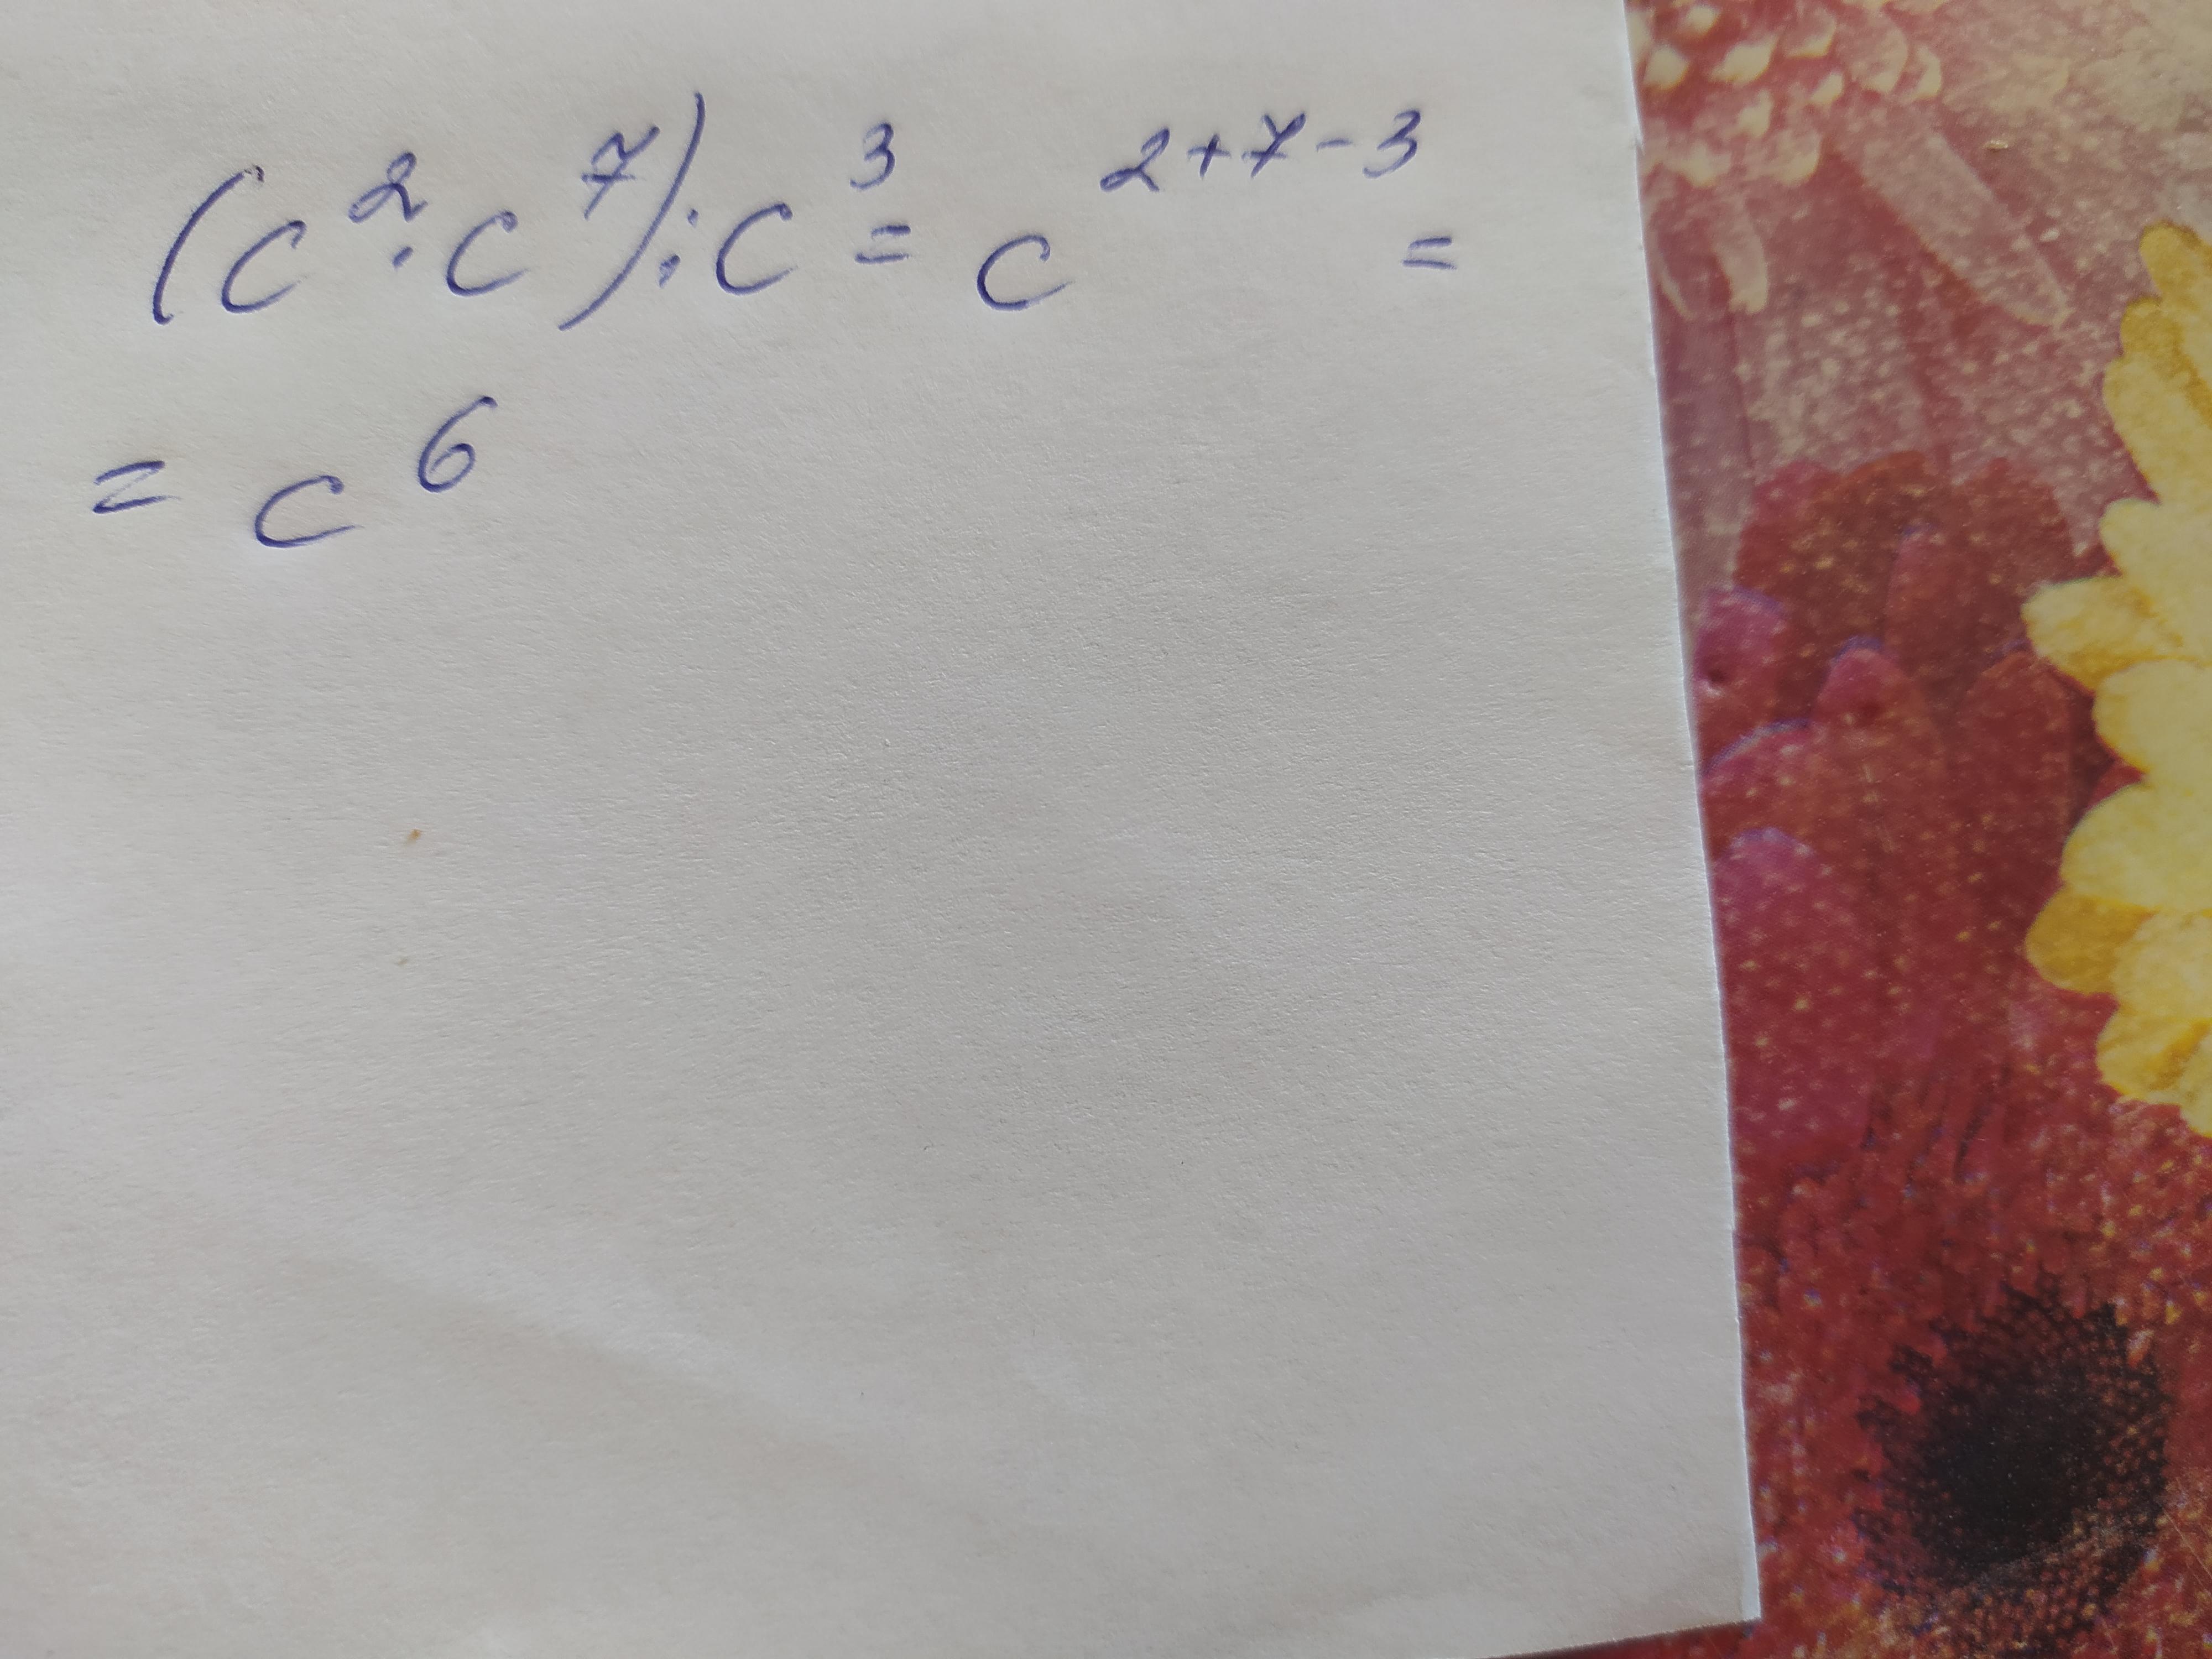 (c²·c⁷):c³=c²⁺⁷⁻³=
=c⁶